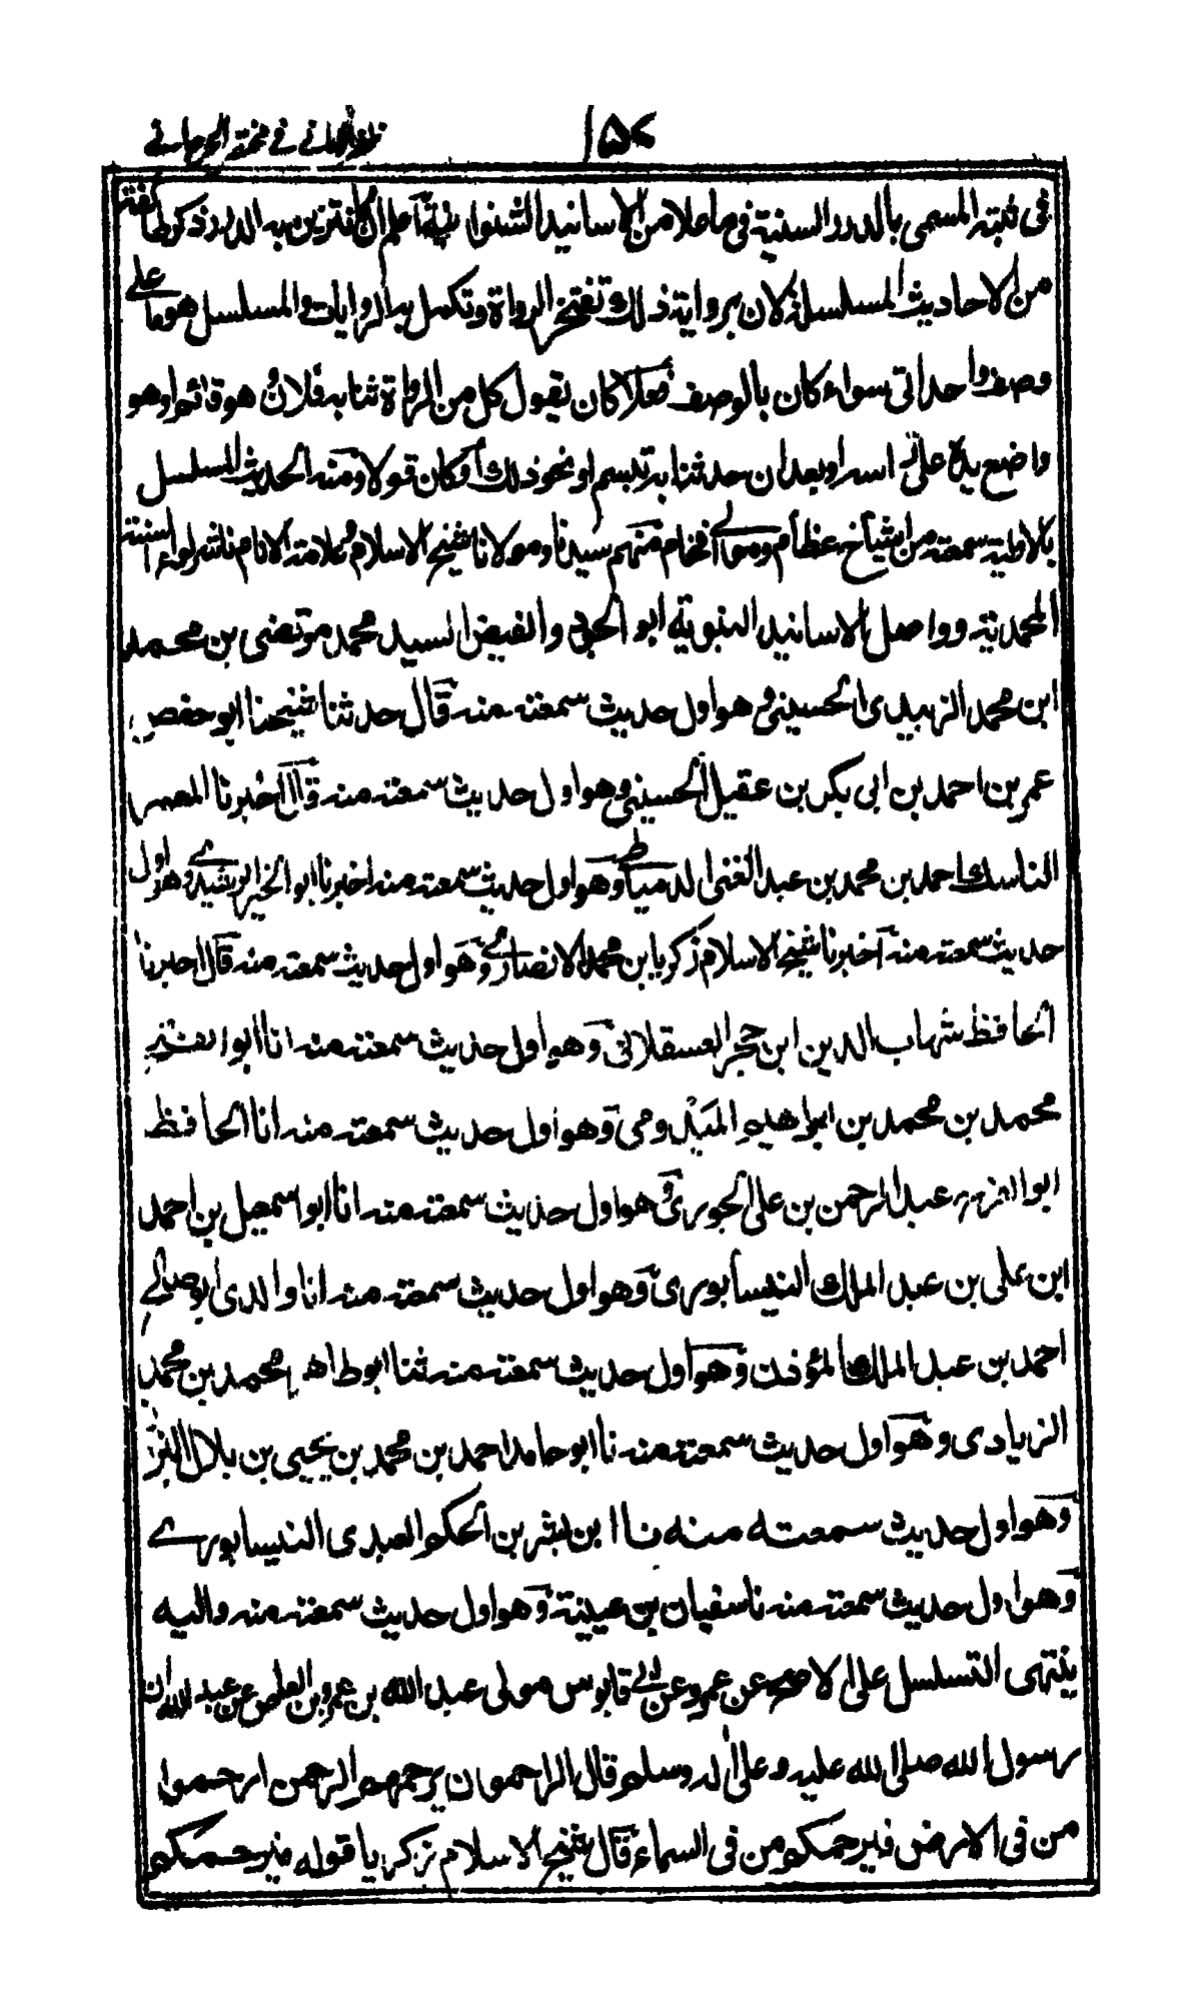 ظفر الأماني في مختصر الجرجاني
في ثبته المسمى بالدرر السنية في ما علا من الاسانيد الشنوانية اعلم ان مما تتزين به الدرر ذكر طائفة
من الاحاديث المسلسلة لان برواية ذلك تفتخر الرواة وتكمل به الروايات والمسلسل هو ما على
وصف واحد اتى سواء كان بالوصف فعلا كان يقول كل من الرواة ثنا به فلان وهو قائم او هو
واضع يده على راسه او بعد ان حدثنا به تبسم او نحو ذلك او كان قولا ومنه الحديث المسلسل
بالاولية سمعته من اشياخ عظام وموالي فخام منهم سيدنا ومولانا شيخ الاسلام علامة الانام ناشر لواء السنة
المحمدية وواصل الاسانيد النبوية ابو الجود والفيض السيد محمد مرتضى بن محمد
ابن محمد الزبيدي الحسيني وهو اول حديث سمعته منه قال حدثنا شيخنا ابو حفص
عمر بن احمد بن ابي بكر بن عقيل الحسيني وهو اول حديث سمعته منه قال اخبرنا المعمر
الناسك احمد بن محمد بن عبد الغني الدمياطي وهو اول حديث سمعته منه اخبرنا ابو الخير الرشيدي وهو اول
حديث سمعته منه اخبرنا شيخ الاسلام زكريا بن محمد الانصاري وهو اول حديث سمعته منه قال اخبرنا
الحافظ شهاب الدين ابن حجر العسقلاني وهو اول حديث سمعته منه انا ابو الفتح
محمد بن محمد بن ابراهيم الميدومي وهو اول حديث سمعته منه انا الحافظ
ابو الفرج عبد الرحمن بن علي الجوزي وهو اول حديث سمعته منه انا ابو اسمعيل بن احمد
ابن علي بن عبد الملك النيسابوري وهو اول حديث سمعته منه انا والدي ابو صالح
احمد بن عبد الملك المؤذن وهو اول حديث سمعته منه ثنا ابو طاهر محمد بن محمد
الزيادي وهو اول حديث سمعته منه نا ابو حامد احمد بن محمد بن يحيى بن بلال البزاز
وهو اول حديث سمعته منه نا ابن بشر بن الحكم العبدي النيسابوري
وهو اول حديث سمعته منه نا سفيان بن عيينة وهو اول حديث سمعته منه واليه
ينتهي التسلسل على الاصح عن عمرو عن ابي قابوس مولى عبد الله بن عمرو بن العاص عن عبد الله ان
رسول الله صلى الله عليه وعلى اله وسلم قال الراحمون يرحمهم الرحمن ارحموا
من في الارض يرحمكم من في السماء قال شيخ الاسلام زكريا قوله يرحمكم